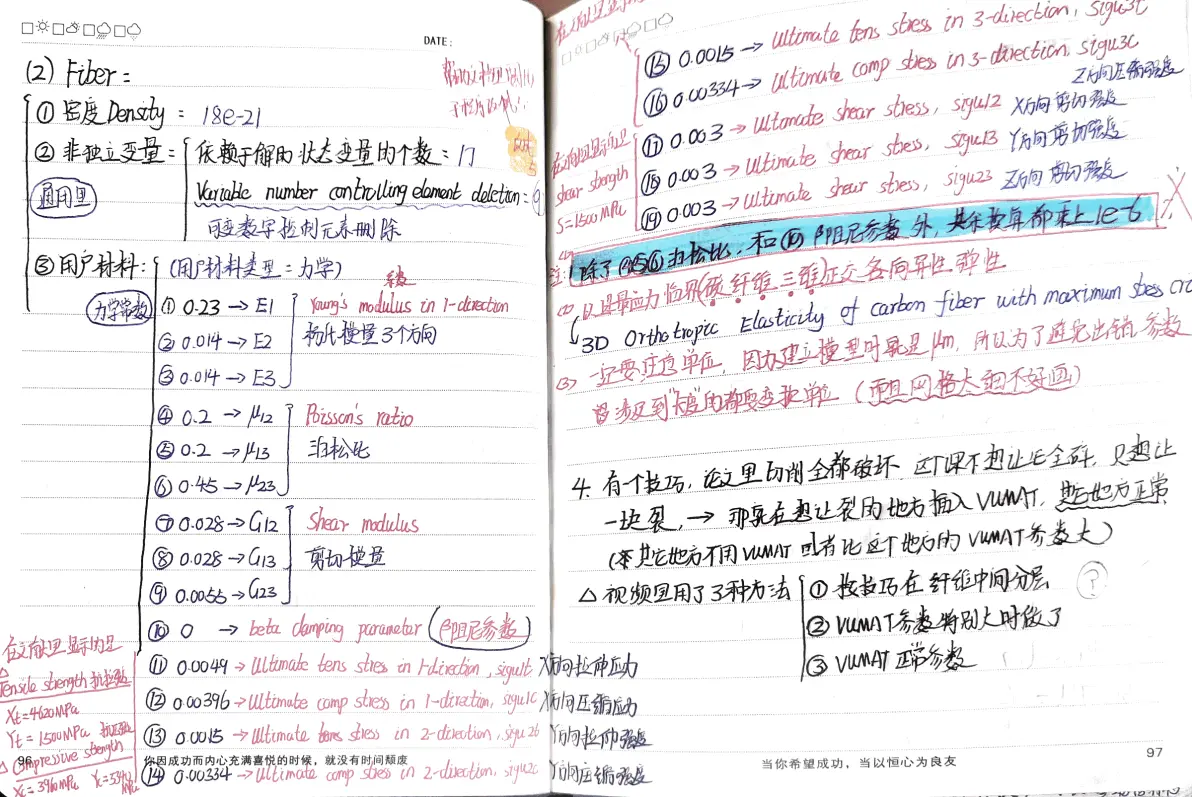 DATE:
(2) Fiber:
① 密度 Density : 18e-21
② 非独立变量: 依赖于解的状态变量的个数: 17
通用里
Variable number controlling element deletion:
可变数字控制元素删除
③ 用户材料: (用户材料类型:力学)
力学常数
① 0.23 → E1 Young's modulus in 1-direction
② 0.014 → E2 杨氏模量3个方向
③ 0.014 → E3
④ 0.2 → μ12 Poisson's ratio
⑤ 0.2 → μ13 泊松比
⑥ 0.45 → μ23
⑦ 0.028 → G12 Shear modulus
⑧ 0.028 → G13 剪切模量
⑨ 0.0055 → G23
⑩ 0 → beta damping parameter (β阻尼参数)
⑪ 0.0049 → Ultimate tens stress in 1-direction, sigu1t X方向拉伸应力
⑫ 0.00396 → Ultimate comp stress in 1-direction, sigu1c X方向压缩应力
⑬ 0.0015 → Ultimate tens stress in 2-direction, sigu2t Y方向拉伸强度
⑭ 0.00334 → Ultimate comp stress in 2-direction, sigu2c Y方向压缩强度
在文献里显示的是
Tensile strength 抗拉强度
Xt=4620MPa
Yt=1500MPa
Compressive strength 抗压强度
Xc=3960MPa
96 你因成功而内心充满喜悦的时候,就没有时间颓废
⑮ 0.0015 → Ultimate tens stress in 3-direction, sigu3t
⑯ 0.00334 → Ultimate comp stress in 3-direction, sigu3c
Z方向压缩强度
⑰ 0.003 → Ultamate shear stress, sigu12 X方向剪切强度
⑱ 0.003 → Ultimate shear stress, sigu13 Y方向剪切强度
⑲ 0.003 → Ultimate shear stress, sigu23 Z方向剪切强度
在文献里显示的是
shear strength
S=1500MPa
注: 除了④⑤⑥泊松比,和⑩β阻尼参数外,其余数算都乘上1e-6
(2) 以最大应力临界(碳纤维三维)正交各向异性弹性
3D Orthotropic Elasticity of carbon fiber with maximum stess cri
(3) 一定要注意单位,因为建立模型时就是μm,所以为了避免出错,参数
当涉及到“长度”的都要变换单位 (而且网格太细不好画)
4. 有个技巧,论文里切削全都破坏,这个课不想让它全碎,只想让
一块裂,→ 那就在想让裂的地方插入VUMAT,其它地方正常
(本其它地方不用VUMAT或者比这个地方的VUMAT参数大)
△ 视频里用了3种方法 ① 按技巧在纤维中间分层 ?
② VUMAT参数特别大时做了
③ VUMAT正常参数
当你希望成功,当以恒心为良友 97